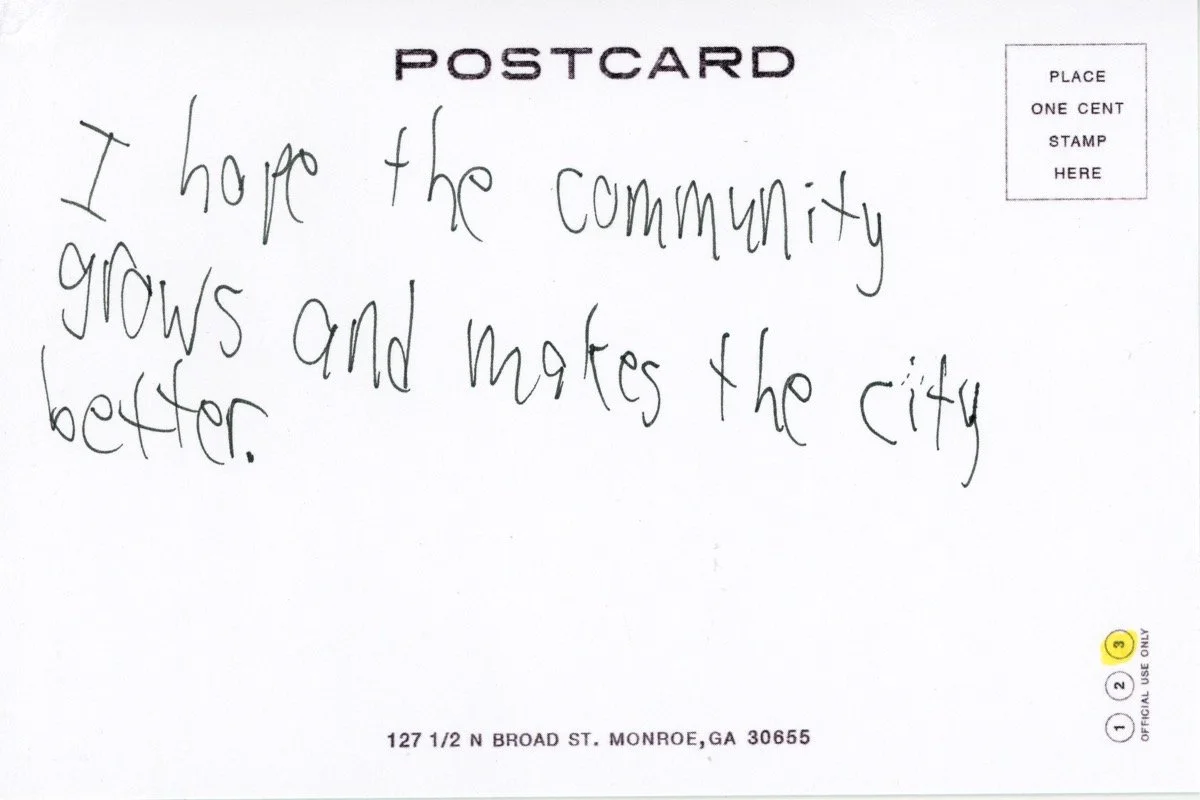 POSTCARD
PLACE
ONE CENT
STAMP
HERE
I hope the community
grows and makes the city
better.
1 2 3
OFFICIAL USE ONLY
127 1/2 N BROAD ST. MONROE,GA 30655